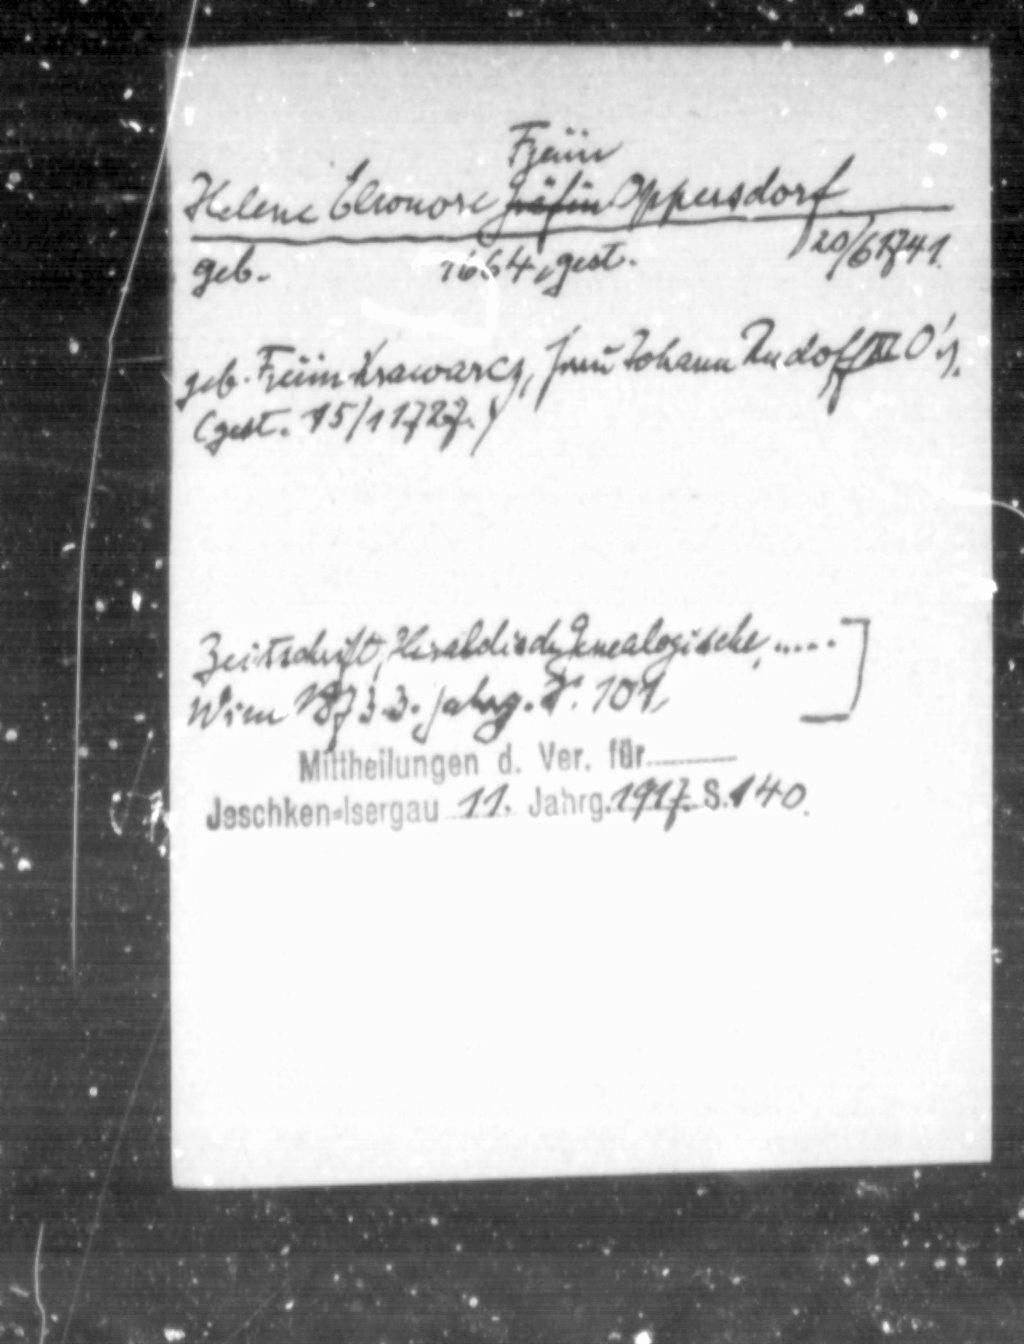 Freiin
Helene Eleonore Gräfin Oppersdorf
geb. 1664, gest. 20/6 1741.
geb. Freiin Krawarcz, Frau Johann Rudolf III O's.
(gest. 15/1 1727.)
Zeitschrift, Heraldisch Genealogische, .....
Wien 1873 3. Jahrg. S. 101,
Mittheilungen d. Ver. für
Jeschken-Isergau 11. Jahrg. 1917. S. 140.